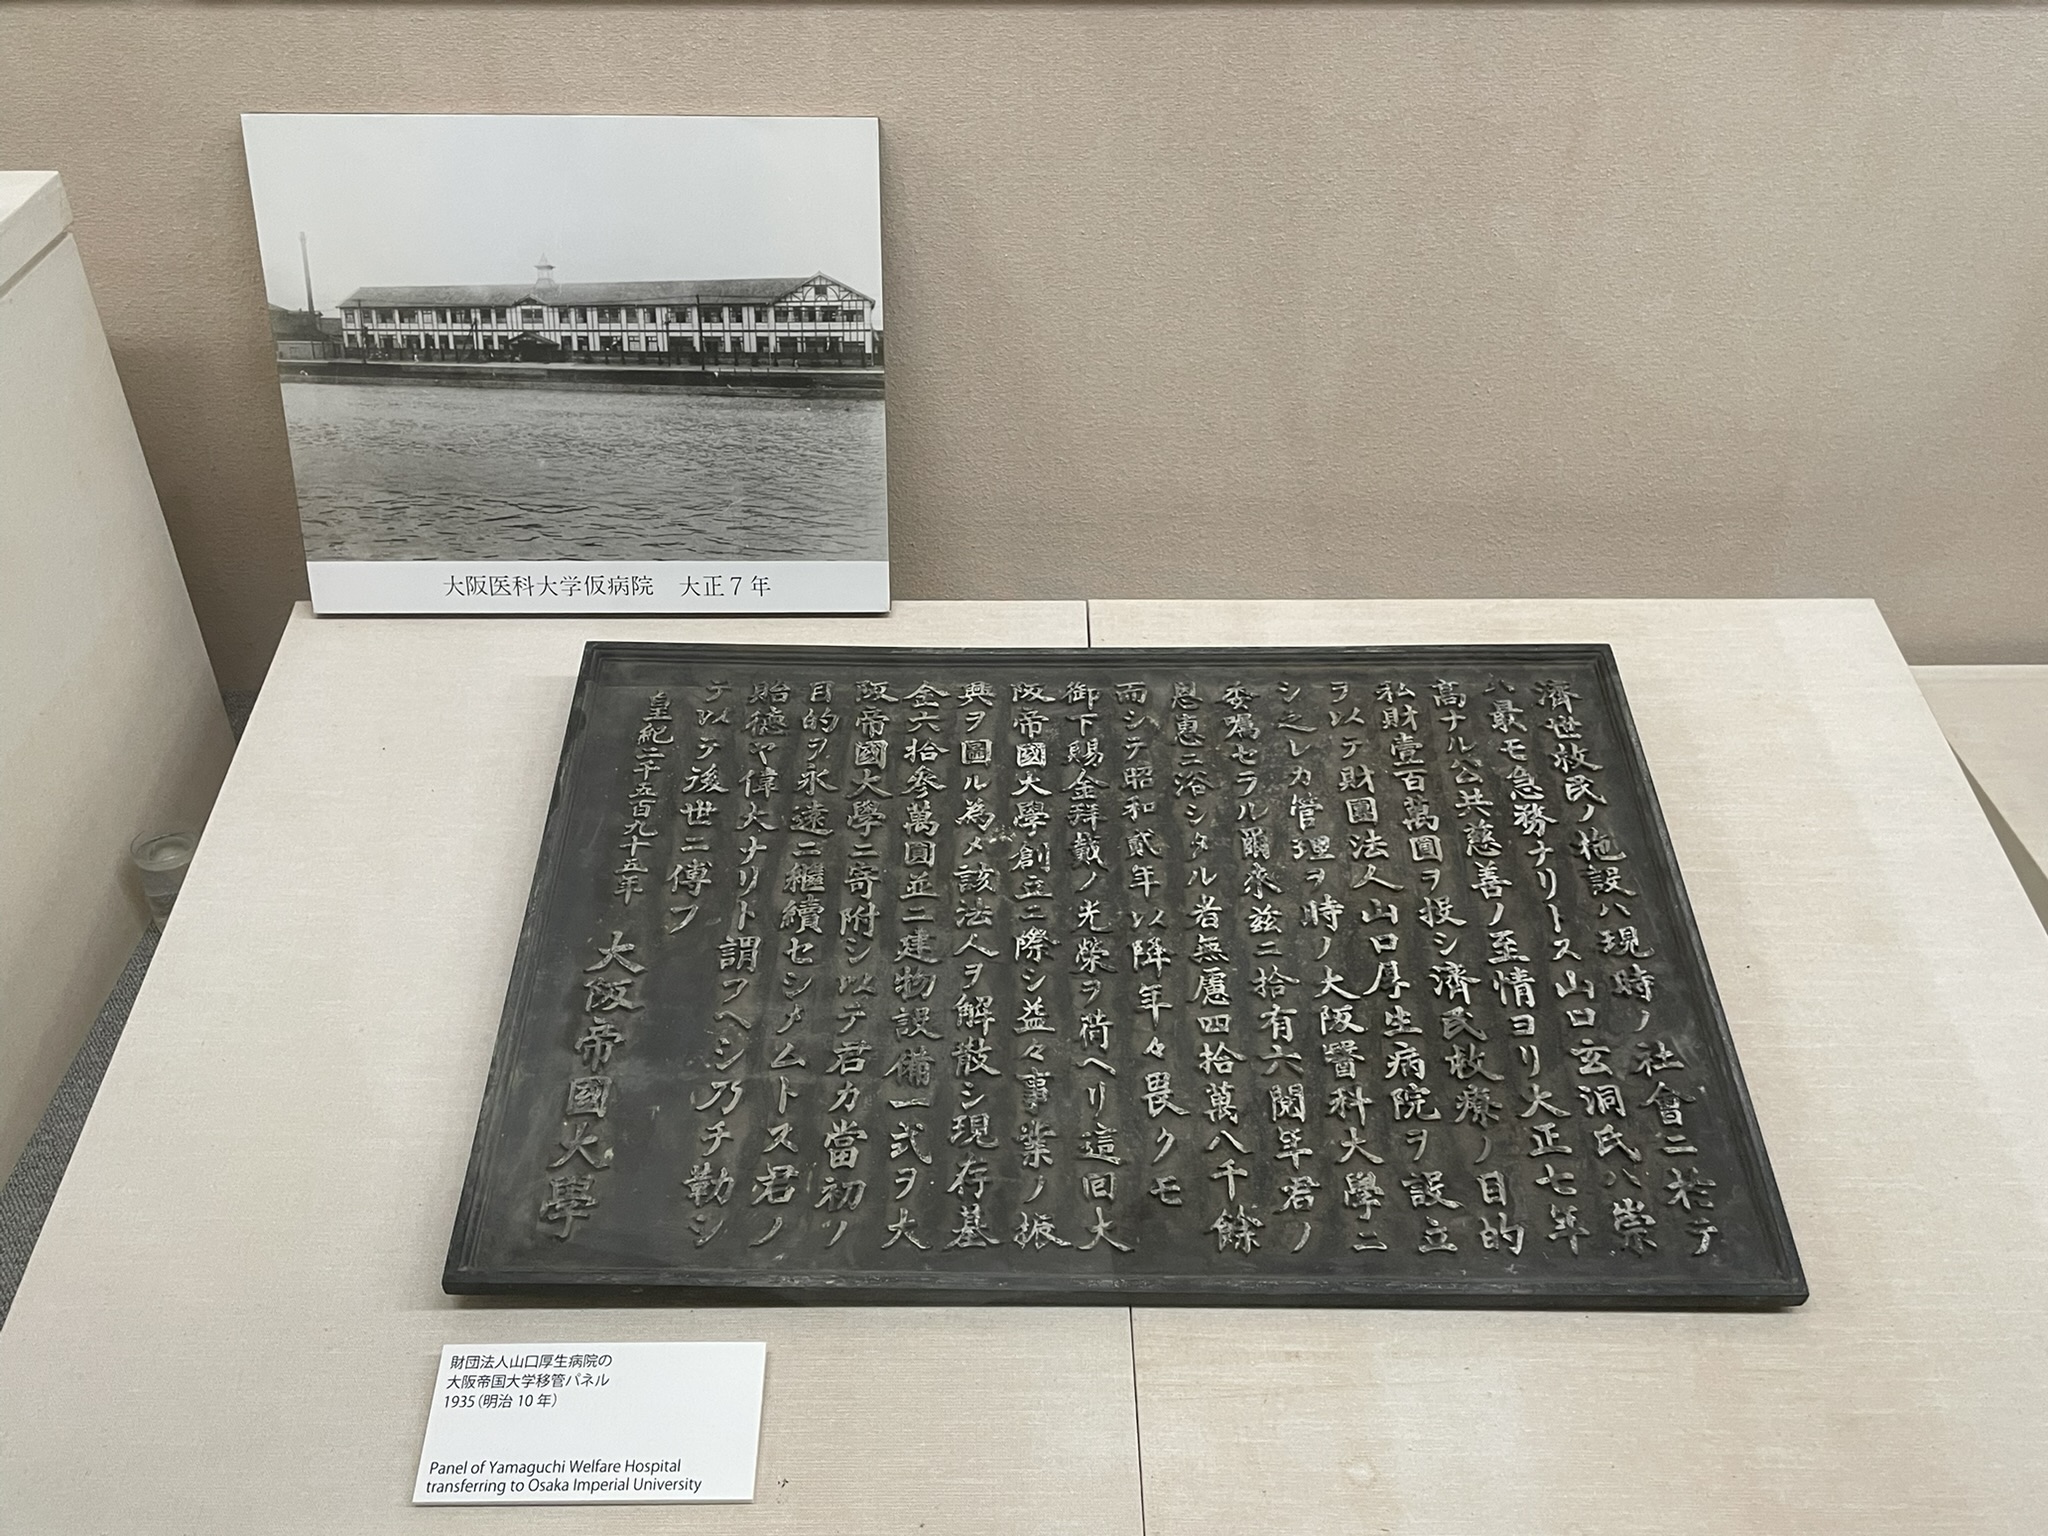 大阪医科大学仮病院　大正7年
濟世救民ノ施設ハ現時ノ社會ニ於テ
ハ最モ急務ナリトス山口玄洞氏ハ崇
高ナル公共慈善ノ至情ヨリ大正七年
私財壹百萬圓ヲ投シ濟民救療ノ目的
ヲ以テ財團法人山口厚生病院ヲ設立
シ之レカ管理ヲ時ノ大阪醫科大學ニ
委囑セラル爾来茲ニ拾有六閱年君ノ
恩惠ニ浴シタル者無慮四拾萬八千餘
而シテ昭和貳年以降年々畏クモ
御下賜金拜戴ノ光榮ヲ荷ヘリ這回大
阪帝國大學創立ニ際シ益々事業ノ振
興ヲ圖ル為メ該法人ヲ解散シ現存基
金六拾參萬圓並ニ建物設備一式ヲ大
阪帝國大學ニ寄附シ以テ君カ當初ノ
目的ヲ永遠ニ繼續セシメムトス君ノ
貽徳ヤ偉大ナリト謂フヘシ乃チ勒シ
テ以テ後世ニ傳フ
皇紀二千五百九十五年
大阪帝國大學
財団法人山口厚生病院の
大阪帝国大学移管パネル
1935（明治 10 年）
Panel of Yamaguchi Welfare Hospital
transferring to Osaka Imperial University